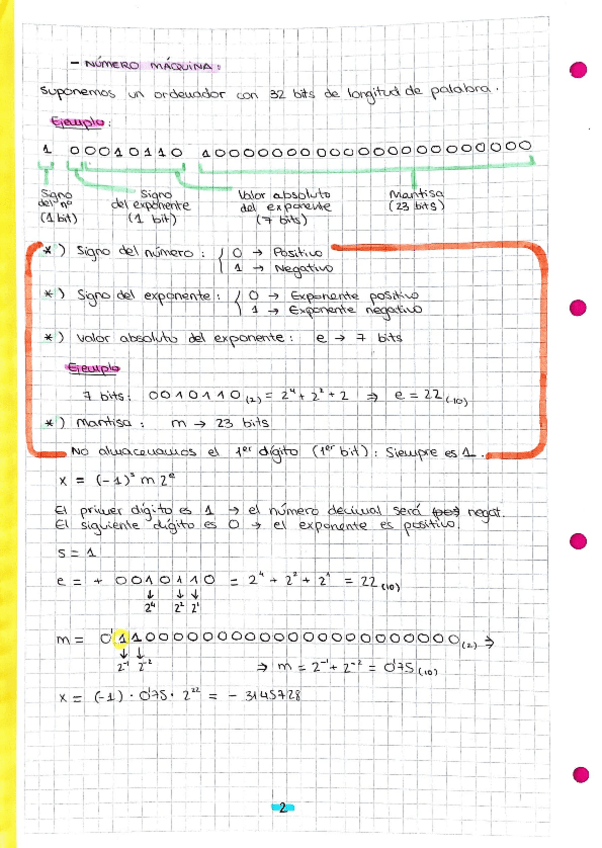 - NÚMERO MÁQUINA:
Suponemos un ordenador con 32 bits de longitud de palabra.
Ejemplo:
1 00010110 10000000000000000000000
Signo del nº (1 bit)
Signo del exponente (1 bit)
Valor absoluto del exponente (7 bits)
Mantisa (23 bits)
*) Signo del número: { 0 → Positivo
1 → Negativo
*) Signo del exponente: { 0 → Exponente positivo
1 → Exponente negativo
*) Valor absoluto del exponente: e → 7 bits
Ejemplo
7 bits: 0010110 (2) = 2⁴ + 2² + 2 ⇒ e = 22 (10)
*) Mantisa: m → 23 bits
No almacenamos el 1er dígito (1er bit): Siempre es 1.
x = (-1)ˢ m 2ᵉ
El primer dígito es 1 → el número decimal será (pos) negat.
El siguiente dígito es 0 → el exponente es positivo.
s = 1
e = + 0010110 = 2⁴ + 2² + 2¹ = 22 (10)
↓ ↓ ↓
2⁴ 2² 2¹
m = 0'110000000000000000000000 (2) ⇒
↓ ↓
2⁻¹ 2⁻² ⇒ m = 2⁻¹ + 2⁻² = 0'75 (10)
x = (-1) · 0'75 · 2²² = - 3145728
2